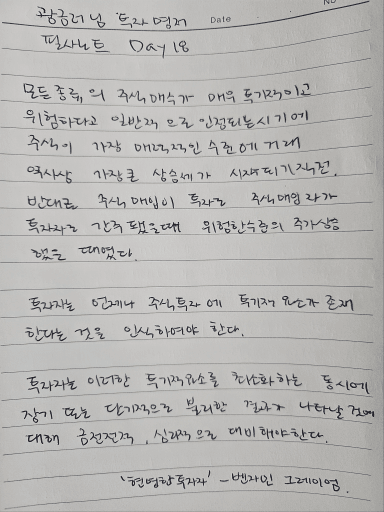 Date
No
투자 명저
필사노트 Day 18
모든 종류의 주식 매수가 매우 투기적이고
위험하다고 일반적으로 인정되는 시기에
주식이 가장 매력적인 수준에 거래
역사상 가장 큰 상승세가 시작되기 직전.
반대로 주식 매입이 투자로 주식 매입자가
투자자로 간주됐을때 위험한 수준의 주가상승
했을 때였다.
투자자는 언제나 주식투자에 투기적 요소가 존재
한다는 것을 인식하여야 한다.
투자자는 이러한 투기적요소를 최소화하는 동시에
장기 또는 단기적으로 불리한 결과가 나타날 것에
대해 금전전적, 심리적으로 대비해야한다.
'현명한 투자자' - 벤자민 그레이엄.